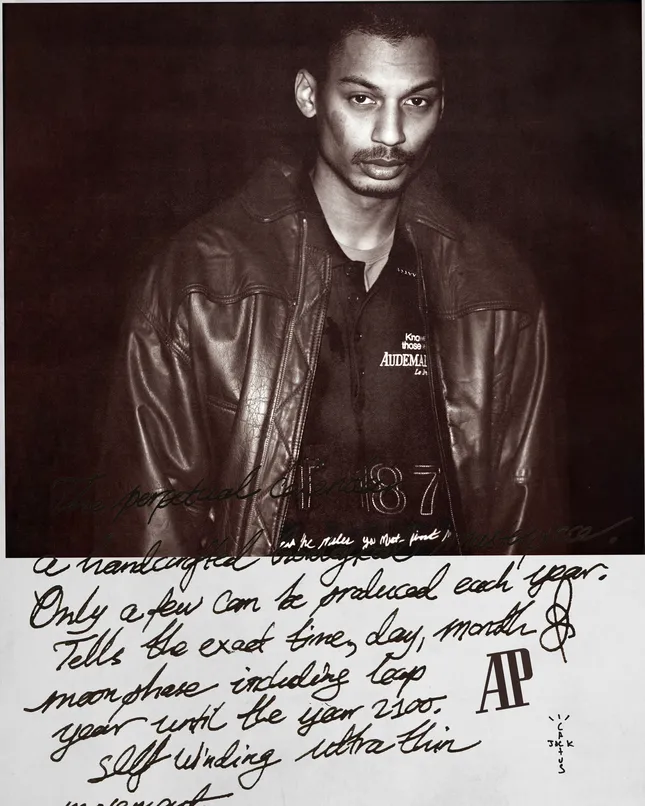 Know
those
AUDEMA
Le Br
187
perpetual Calendar
a handcrafted
Only a few can be produced each year.
Tells the exact time, day, month &
moonphase including leap
year until the year 2100.
self winding ultra thin
movement
AP
CACTUS
JACK